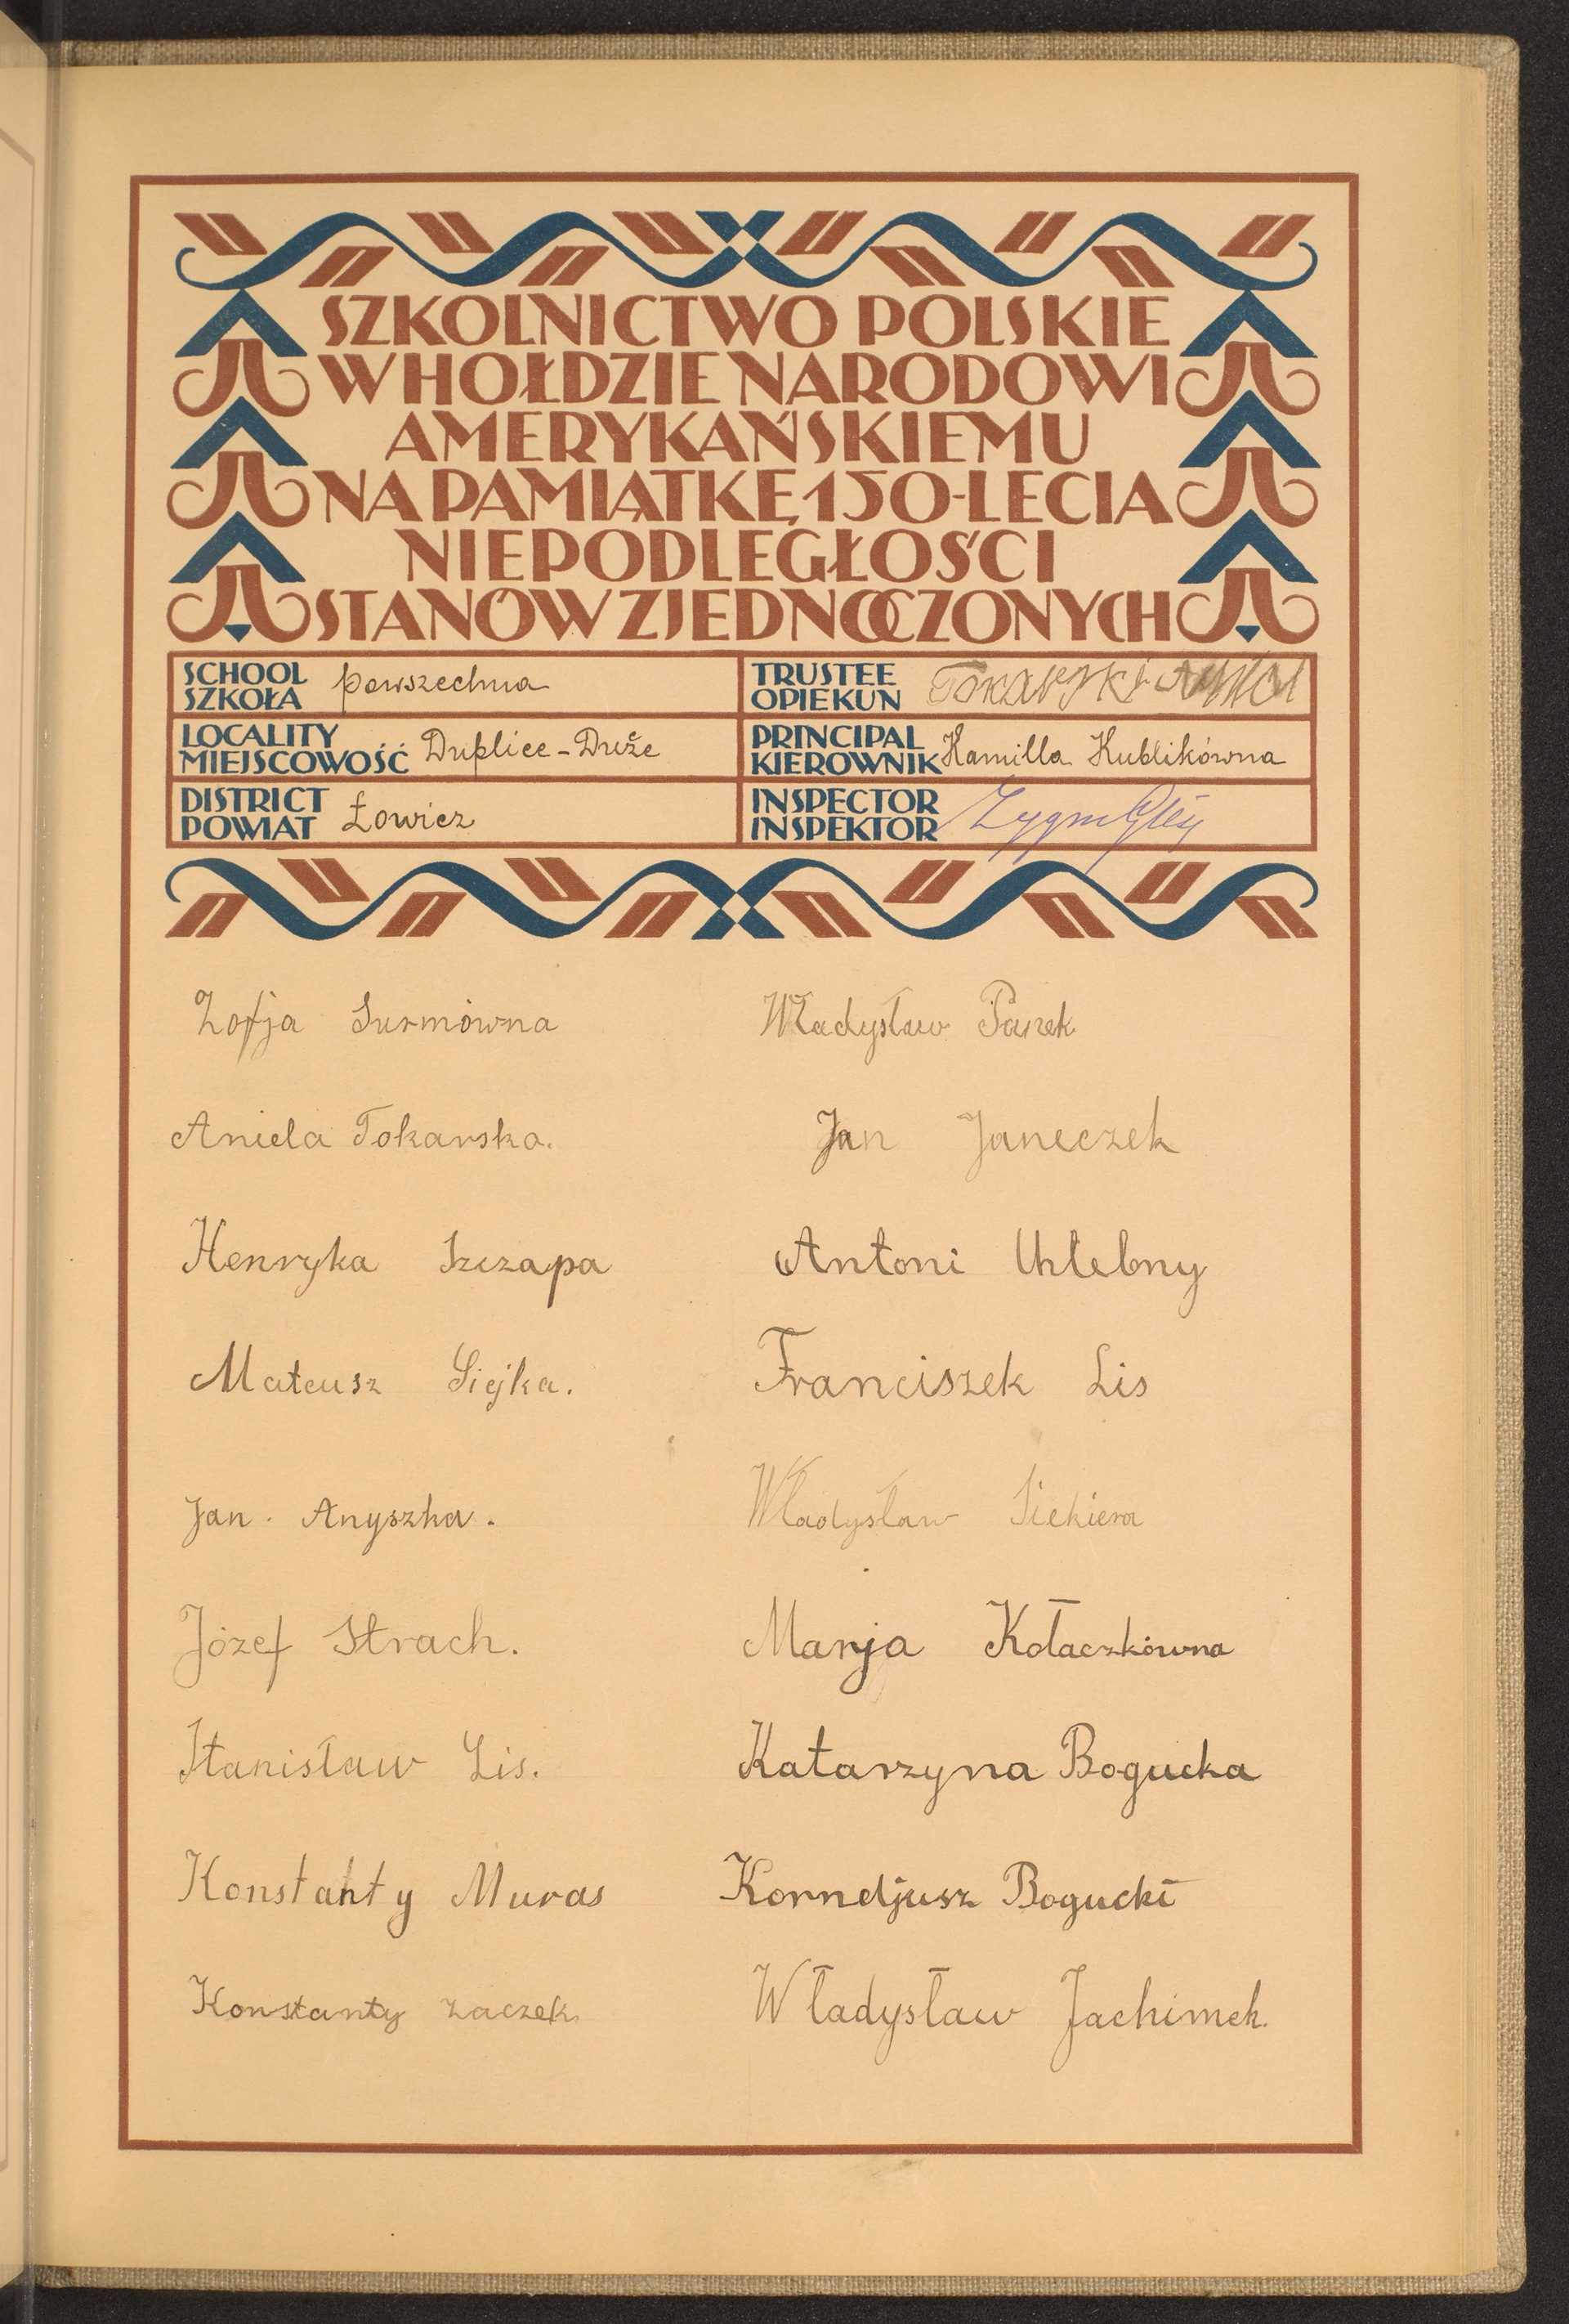 SZKOLNICTWO POLSKIE
W HOŁDZIE NARODOWI
AMERYKAŃSKIEMU
NA PAMIĄTKĘ 150-LECIA
NIEPODLEGŁOŚCI
STANÓW ZJEDNOCZONYCH
SCHOOL
SZKOŁA powszechna
TRUSTEE
OPIEKUN Tokarski
LOCALITY
MIEJSCOWOŚĆ Duplice-Duże
PRINCIPAL
KIEROWNIK Kamilla Kublikówna
DISTRICT
POWIAT Łowicz
INSPECTOR
INSPEKTOR
Zofja Surmówna
Aniela Tokarska.
Henryka Szczapa
Mateusz Siejka.
Jan. Anyszka.
Józef Strach.
Stanisław Lis.
Konstanty Muras
Konstanty Zaczek
Władysław Panek
Jan Janeczek
Antoni Chlebny
Franciszek Lis
Władysław Siekiera
Marja Kołaczkówna
Katarzyna Bogucka
Korneljusz Bogucki
Władysław Jachimek.